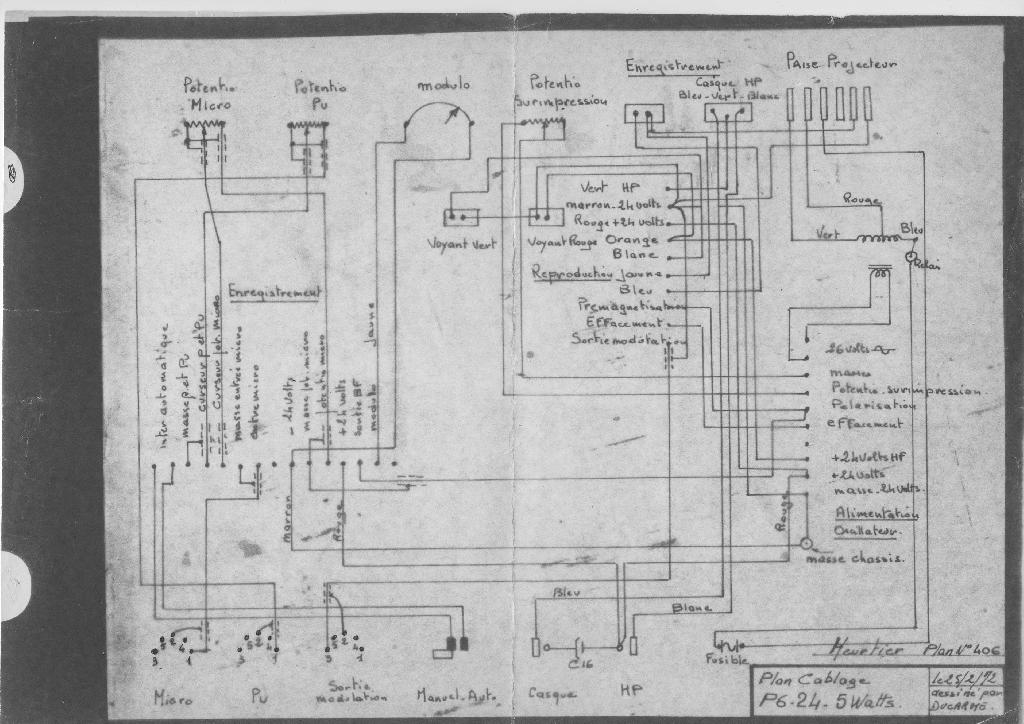 Potentio
Micro
Potentio
Pu
modulo
Potentio
Surimpression
Enregistrement
Casque HP
Bleu-Vert-Blanc
Prise Projecteur
Vert HP
marron-24volts
Rouge+24volts
Orange
Blanc
Reproduction jaune
Bleu
Prémagnétisation
Effacement
Sortie modulation
Voyant Vert
Voyant Rouge
Rouge
Vert
Bleu
Relais
Enregistrement
Inter automatique
masse p. et Pu
curseur p. et Pu
curseur pot. micro
masse entrée micro
entrée micro
-24Volts
masse pot. micro
potentio micro
+24 volts
Sortie BF
modulo
jaune
26volts
masse
Potentio. surimpression
Polarisation
effacement
+24voltsHF
+24volts
masse-24volts.
Alimentation
Oscillateur.
masse chassis.
marron
Rouge
Rouge
Bleu
Blanc
3 5 2 4 1
3 5 2 4 1
3 5 2 4 1
C16
Fusible
Micro
Pu
Sortie
modulation
Manuel-Auto.
Casque
HP
Heurtier Plan N°406
Plan Cablage
P6-24-5Watts.
le 25/2/72
dessiné par
DUCARME.